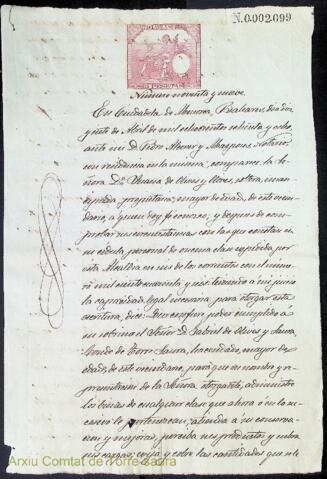 N.0.002.099
Número noventa y nueve
En Ciudadela de Menorca, Baleares, día diez
y siete de Abril de mil ochocientos setenta y ocho,
ante mí Dn. Pedro Alcover y Maspons, Notario,
con residencia en la misma, comparece: la Se-
ñora Dª. de Olives y soltera, eman-
cipada, propietaria, mayor de edad, de este vecin-
dario, a quien doy fe conozco; y después de com-
probar sus circunstancias con las que constan en
su cédula personal de clase espedida por
esta Alcaldía en de los corrientes con el núme-
ro mil ciento cuarenta y seis teniendo a mi juicio
la capacidad legal necesaria para otorgar esta
escritura, dice: Que confiere poder cumplido a
su sobrino el Señor D. Gabriel de Olives y Saura
Conde de Torre-Saura, hacendado, mayor de
edad, de este vecindario, para que en nombre y re-
presentación de la Señora otorgante, administre
los bienes de cualquier clase que ahora o en lo su-
cesivo le pertenezcan, atienda a su conserva-
ción y mejoras, perciba sus productos y cubra
sus cargas; exija y cobre las cantidades que se le
Arxiu Comtat de Torre-saura